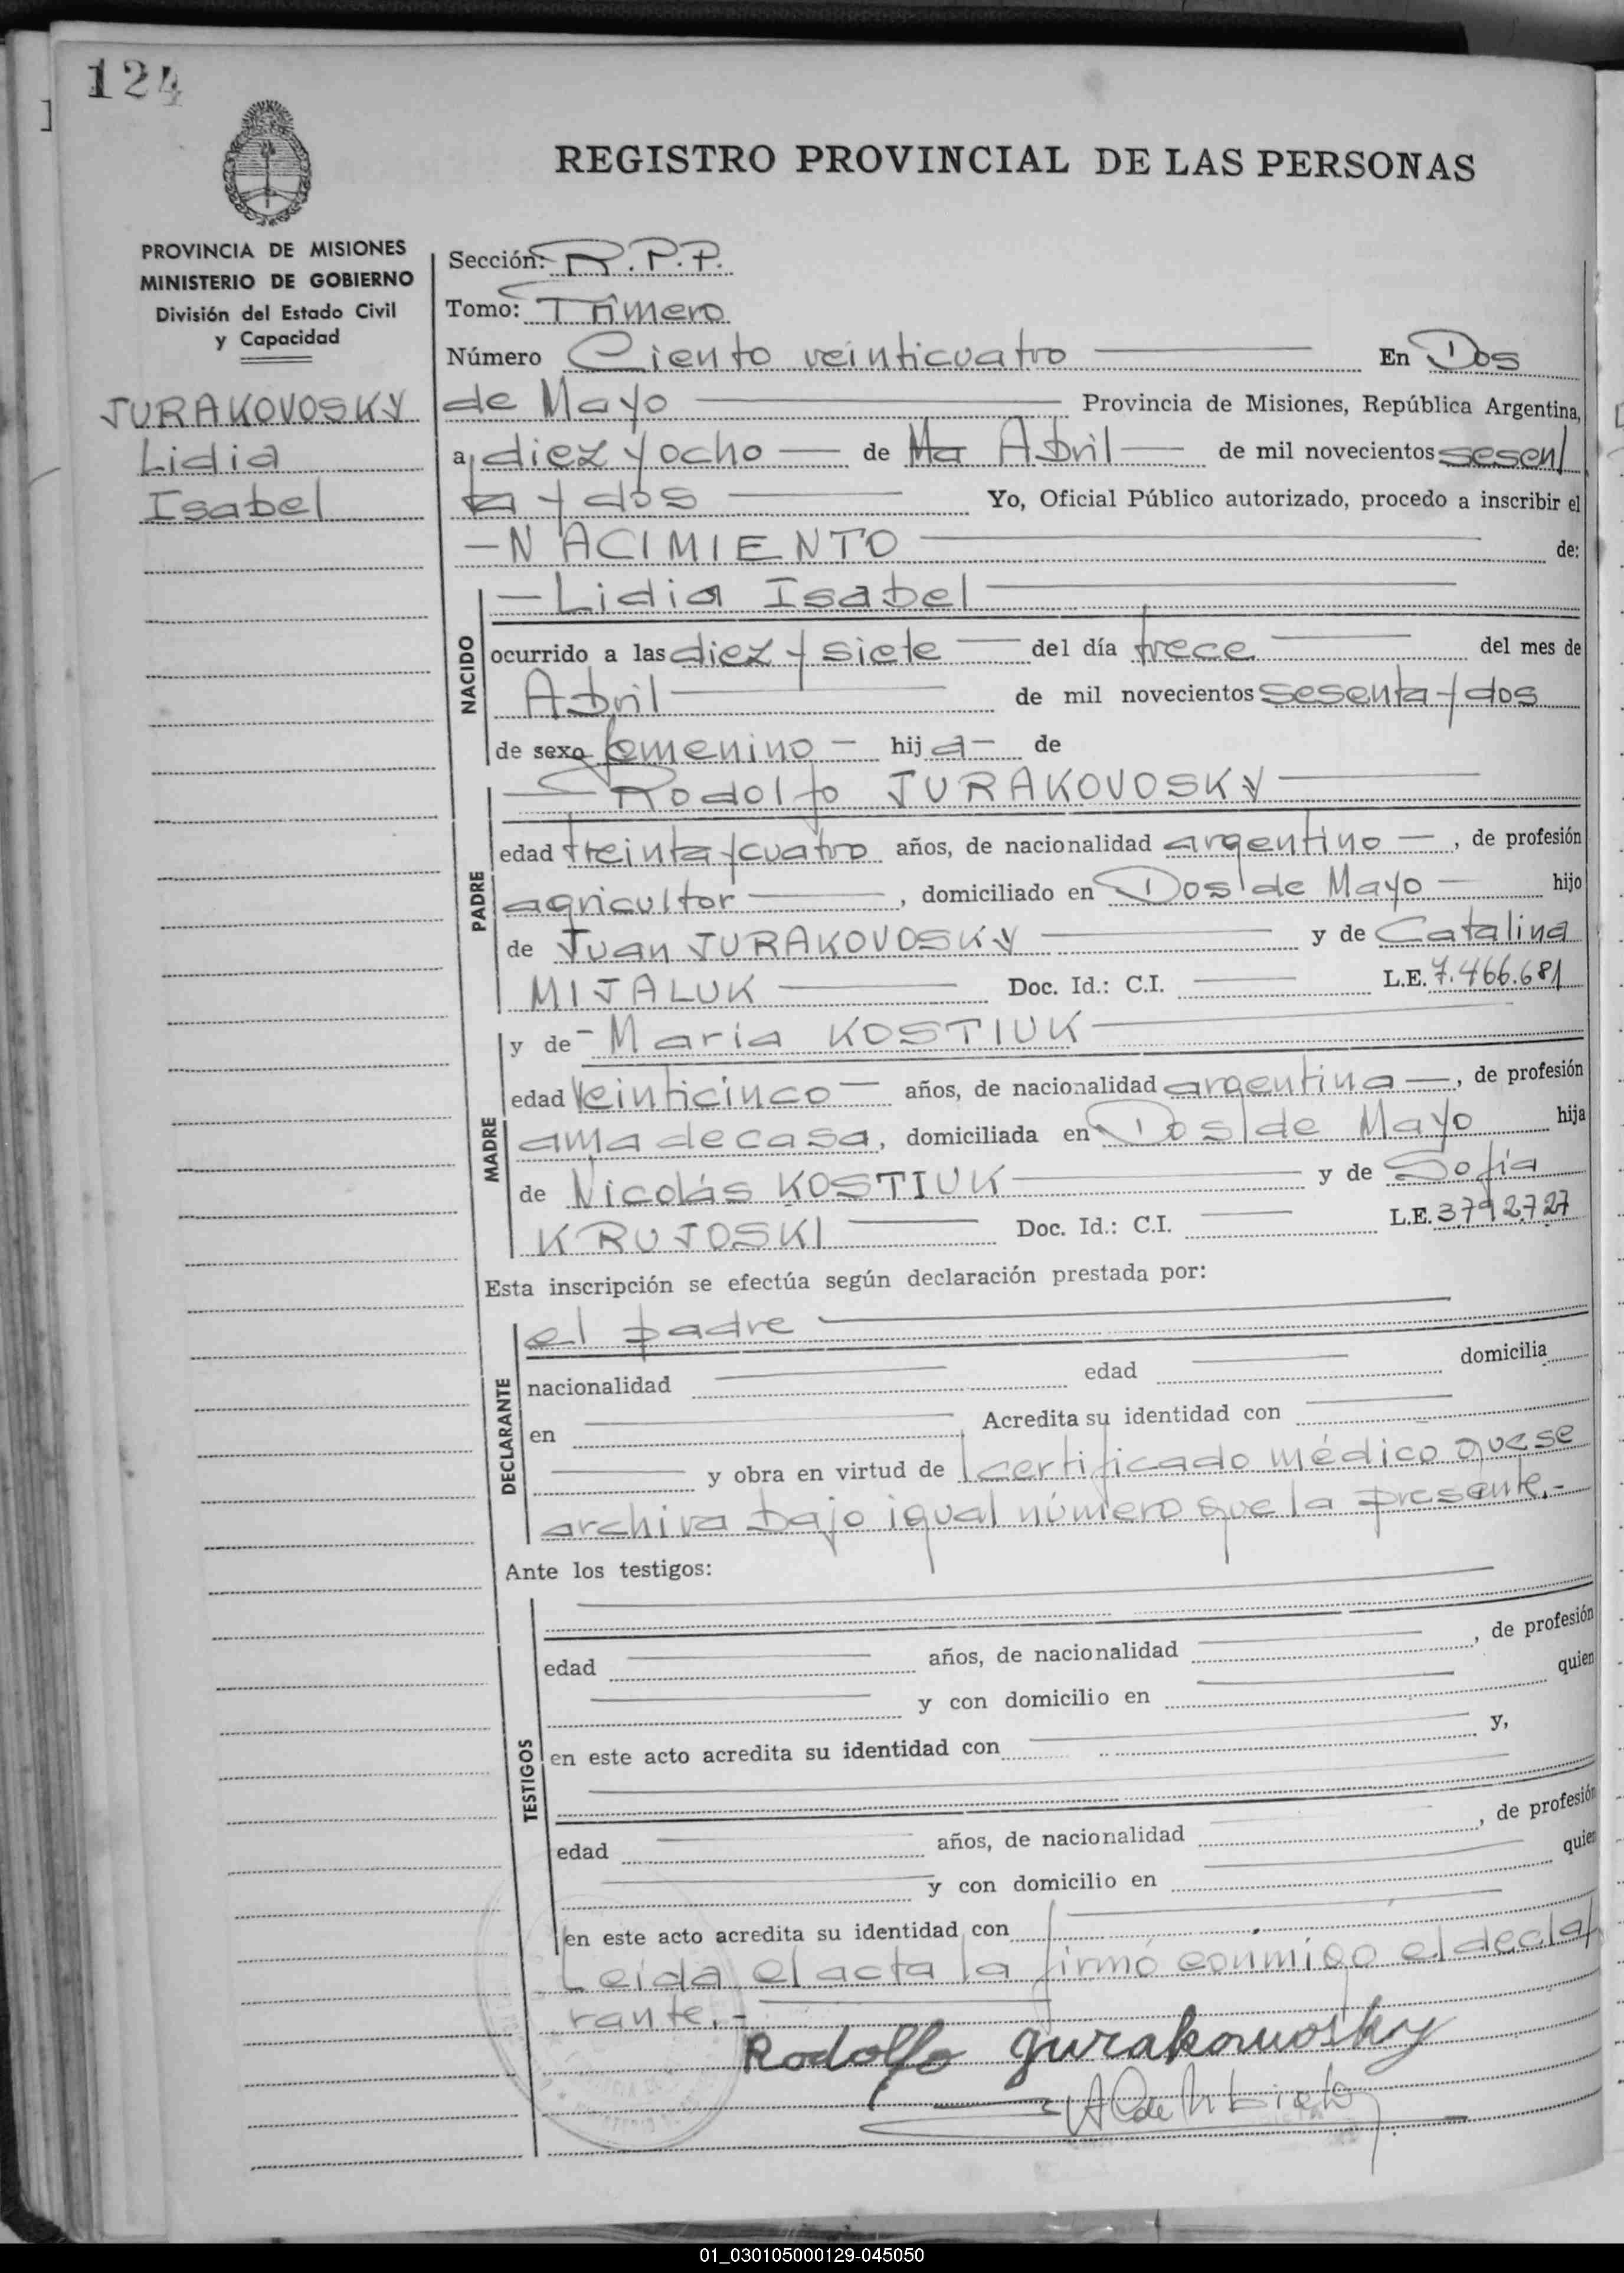 124
REGISTRO PROVINCIAL DE LAS PERSONAS
PROVINCIA DE MISIONES
MINISTERIO DE GOBIERNO
División del Estado Civil
y Capacidad
JURAKOVOSKY
Lidia
Isabel
Sección: R.P.P.
Tomo: Primero
Número Ciento veinticuatro En Dos
de Mayo Provincia de Misiones, República Argentina,
a diez y ocho de Ma Abril de mil novecientos sesen
ta y dos Yo, Oficial Público autorizado, procedo a inscribir el
NACIMIENTO de:
NACIDO
Lidia Isabel
ocurrido a las diez y siete del día trece del mes de
Abril de mil novecientos sesenta y dos
de sexo femenino hija de
PADRE
Rodolfo JURAKOVOSKY
edad treinta y cuatro años, de nacionalidad argentino, de profesión
agricultor, domiciliado en Dos de Mayo hijo
de Juan JURAKOVOSKY y de Catalina
MIJALUK Doc. Id.: C.I. L.E. 7.466.681
MADRE
y de María KOSTIUK
edad veinticinco años, de nacionalidad argentina, de profesión
ama de casa, domiciliada en Dos de Mayo hija
de Nicolás KOSTIUK y de Sofía
KRUJOSKI Doc. Id.: C.I. L.E. 3.792.727
Esta inscripción se efectúa según declaración prestada por:
DECLARANTE
el padre
nacionalidad edad domicilia
en Acredita su identidad con
y obra en virtud de certificado médico que se
archiva bajo igual número que la presente.-
Ante los testigos:
TESTIGOS
edad años, de nacionalidad , de profesión
y con domicilio en quien
en este acto acredita su identidad con y,
edad años, de nacionalidad , de profesión
y con domicilio en quien
en este acto acredita su identidad con
Leída el acta la firmó conmigo el decla
rante.-
Rodolfo Jurakowosky
01_030105000129-045050